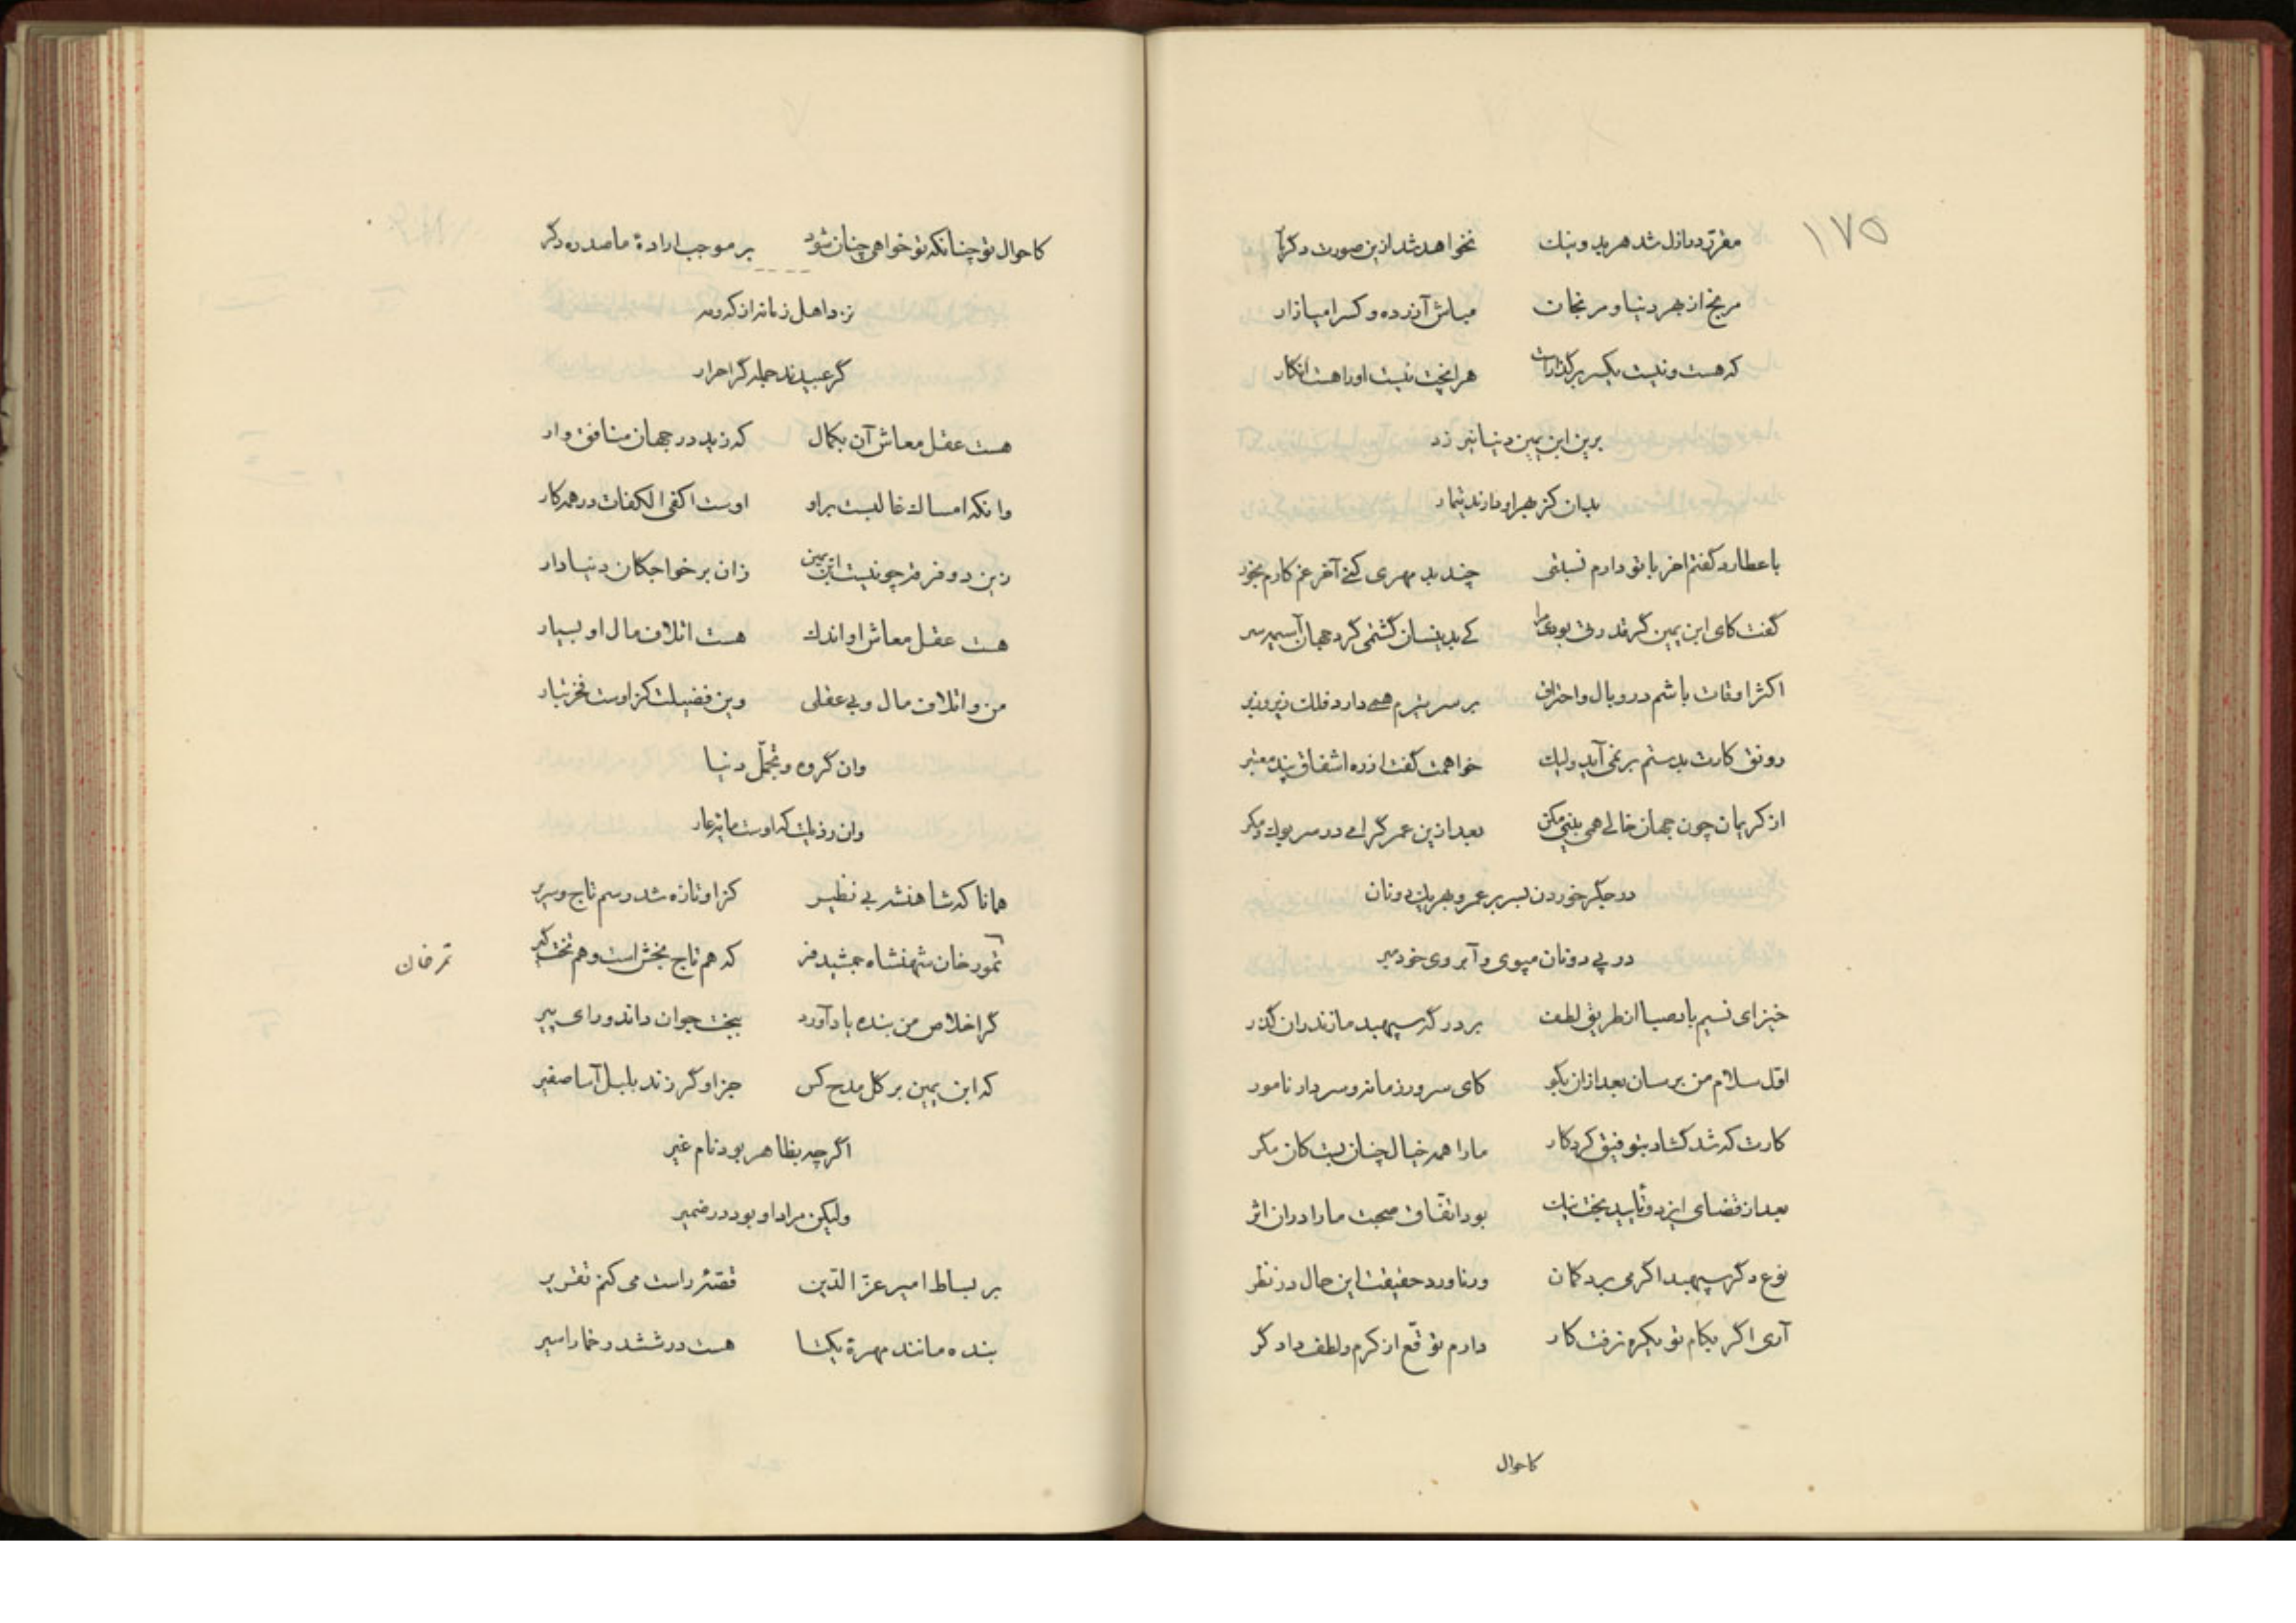 ۱۷۵
مقرر در ازل شد هر بد و نیک نخواهد شد ازین صورت دگر
مرنج از بهر دنیا و مرنجان مباش آزرده و کس را میازار
که هست و نیست یکسر برگذار است هرانچت نیست او را هست انکار
برین ابن یمین دنیا نیرزد
بدان کز بهر او دارند تیمار
با عطارد گفتم اخر با تو دارم نسبتی چند بد مهری کنی آخر غم کارم بخور
گفت کای ابن یمین گر قدرتی بودی مرا کی بدینسان گشتمی گرد جهان آسیمه سر
اکثر اوقات باشم در وبال و احتراق بر سر تیرم همی دارد فلک زیر و زبر
رونق کارت بدستم بر نمی آید ولیک خواهمت گفت از ره اشفاق پند معتبر
از کریمان چون جهان خالی همی بینی مکن بعد ازین عمر گرامی در سر بوک و مگر
در جگر خوردن بسر بر عمر و بهر یک دو نان
در پی دونان مپوی و آبروی خود مبر
خیز ای نسیم باد صبا از طریق لطف بر درگه سپهبد مازندران گذر
اول سلام من برسان بعد ازان بگو کای سرور زمانه و سردار نامور
کارت که شد گشاد بتوفیق کردگار ما را همه خیال چنان بست کان مگر
بعد از قضای ایزد و تأیید بخت نیک بود اتفاق صحبت ما را دران اثر
نوع دگر سپهبد اگر می برد گمان ورناورد حقیقت این حال در نظر
آری اگر بکام تو یکره نرفت کار دارم توقع از کرم و لطف دادگر
کاحوال
کاحوال تو چنانکه تو خواهی چنان شود بر موجب ارادهٔ ما صد ره دگر
نزد اهل زمانه از که و مه
گر عبیدند جمله گر احرار
هست عقل معاش آن بکمال که زید در جهان منافق وار
وانکه امساک غالبست براو اوست اکفی الکفات در همه کار
زین دو فرقه چو نیست ابن یمین زان بر خواجگان دنیادار
هست عقل معاش او اندک هست اتلاف مال او بسیار
من و اتلاف مال و بی عقلی وین فضیلت کز اوست فخر تبار
وان گروه و تجمل دنیا
وان رذیلت که اوست مایه عار
همانا که شاهنشه بی نظیر کز او تازه شد رسم تاج و سریر
تمور خان شهنشاه جمشید فر که هم تاج بخش است و هم تخت گیر
تمرخان
گر اخلاص من بنده یاد آورد ببخت جوان داند و رای پیر
که ابن یمین بر گل مدح کس جز او گر زند بلبل آسا صفیر
اگرچه بظاهر بود نام غیر
ولیکن مراد او بود در ضمیر
بر بساط امیر عز الدین قصه راست می کنم تقریر
بنده مانند مهرهٔ یکتا هست در ششدر خمار اسیر